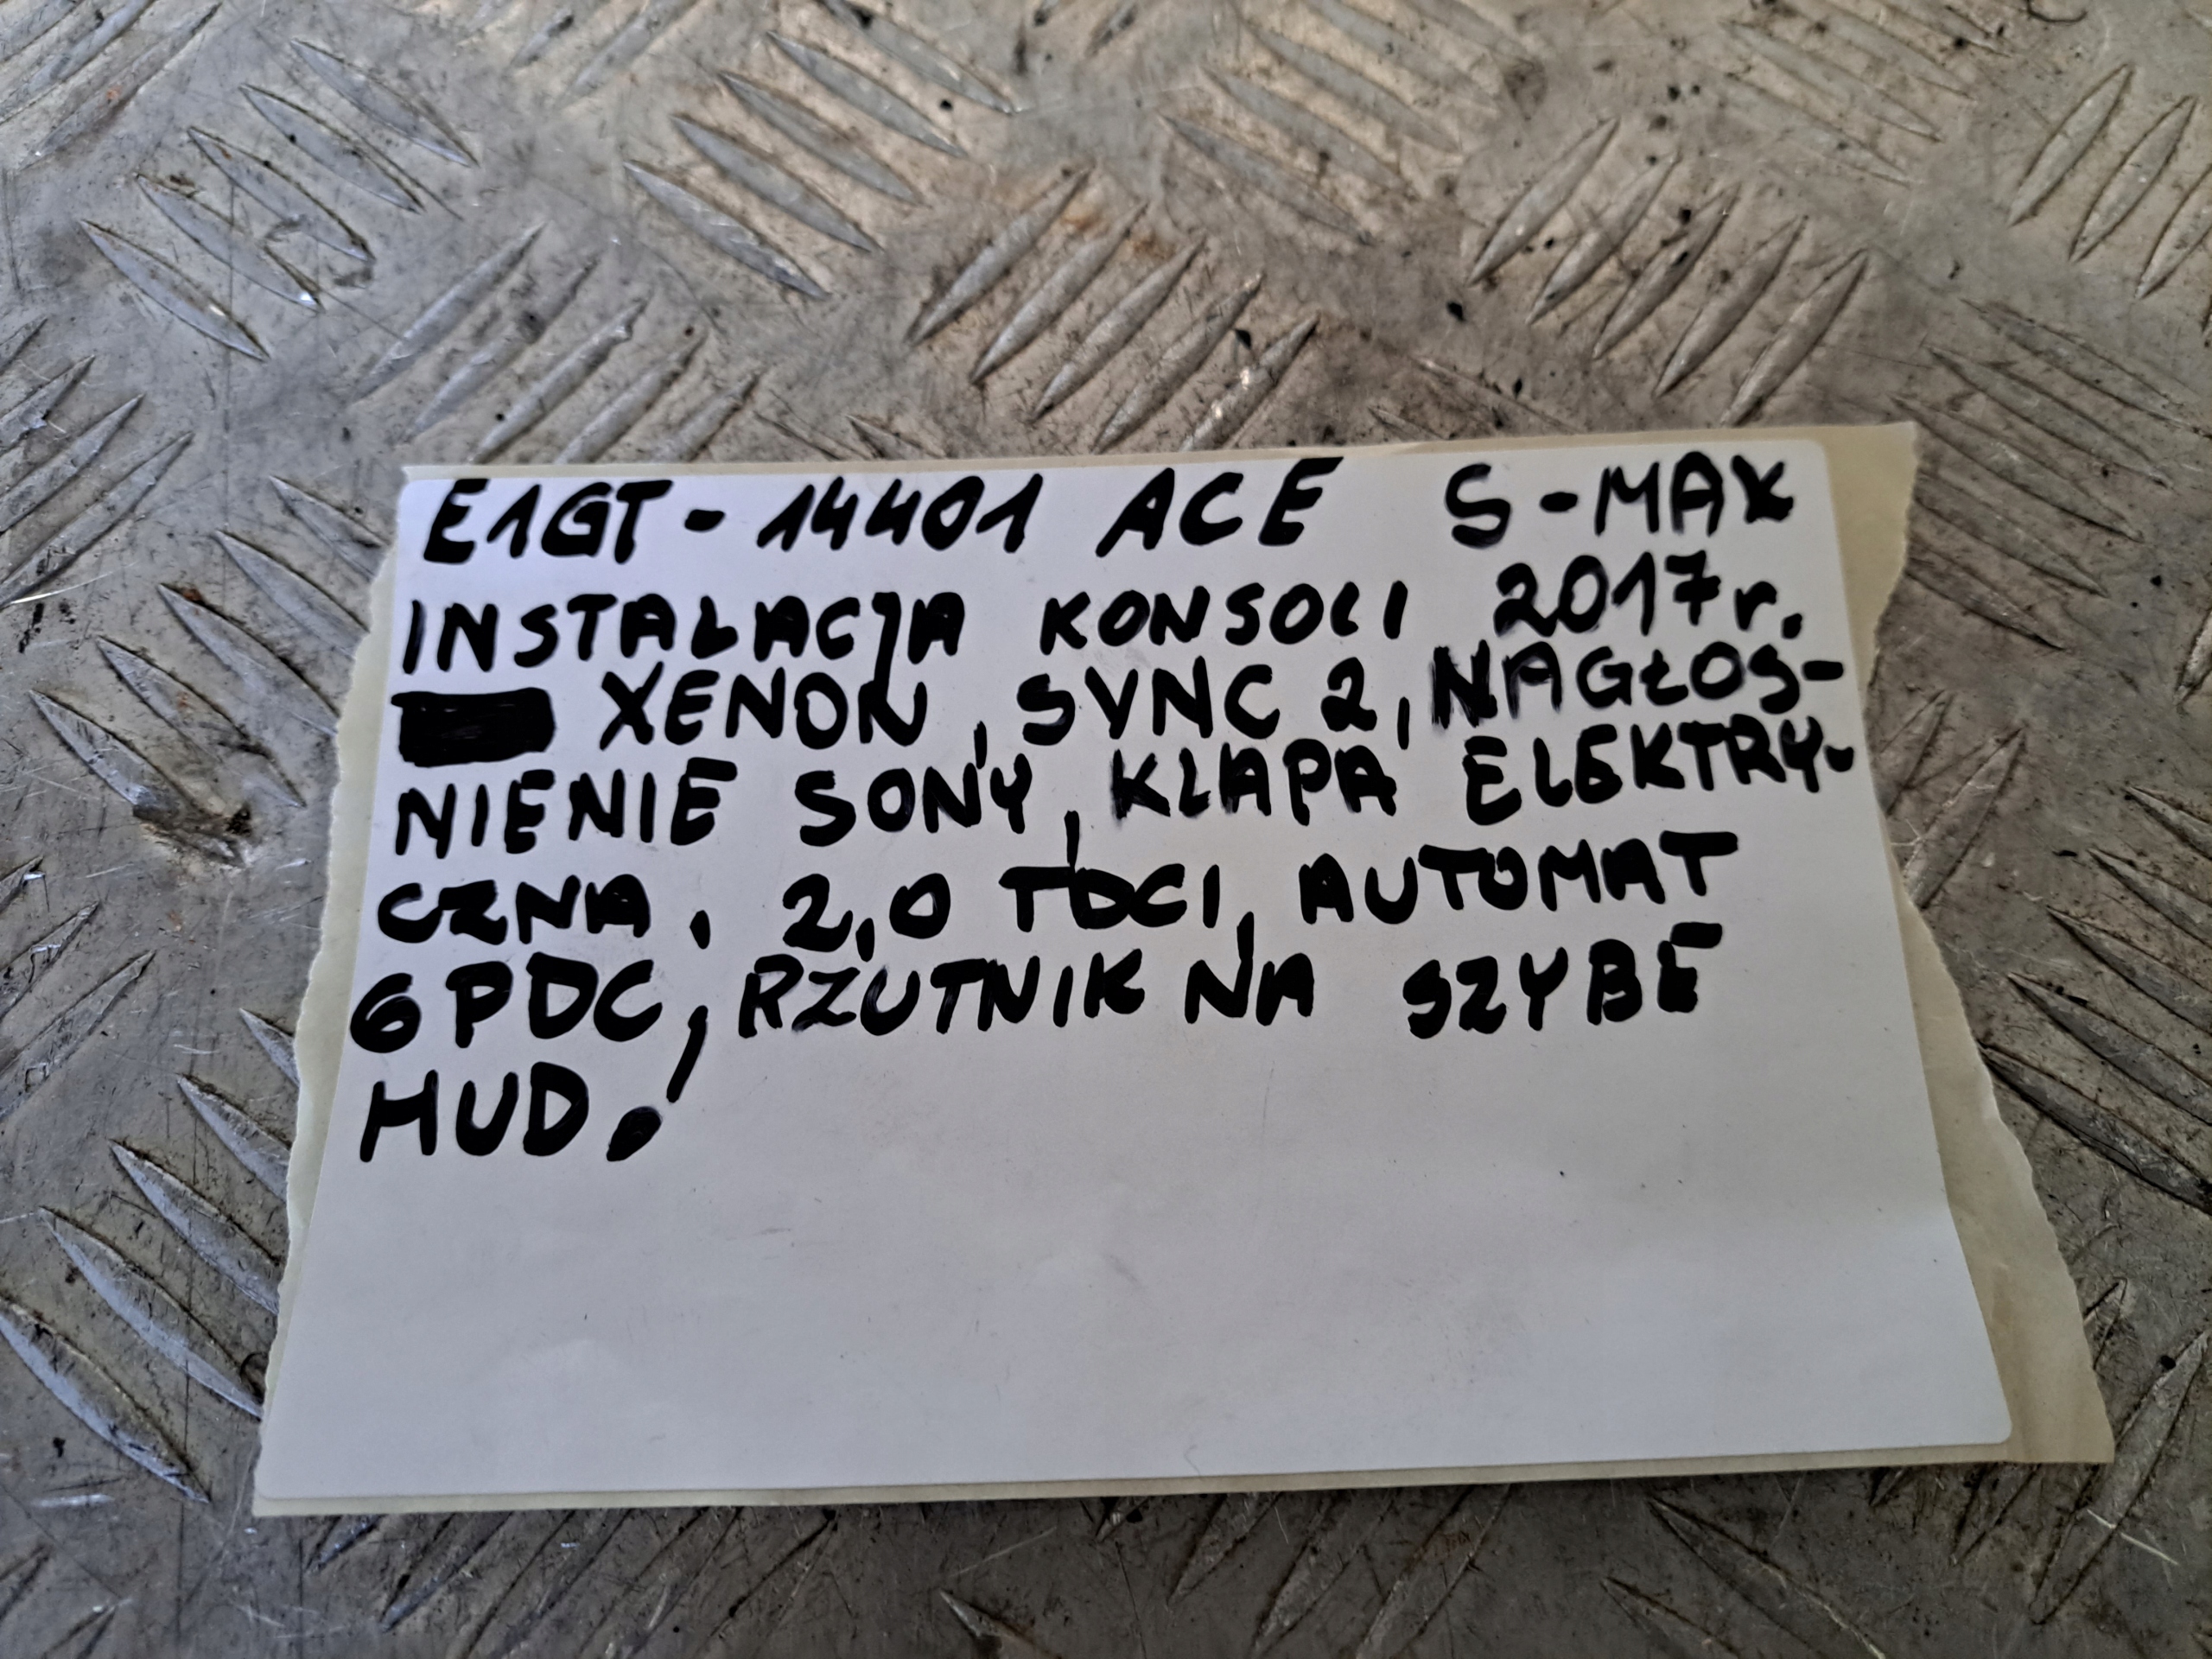 E1GT-14401 ACE S-MAX
INSTALACJA KONSOLI 2017r.
XENON, SYNC 2, NAGŁOS-
NIENIE SONY, KLAPA ELEKTRY-
CZNA, 2,0 TDCI, AUTOMAT
6PDC, RZUTNIK NA SZYBE
HUD.!